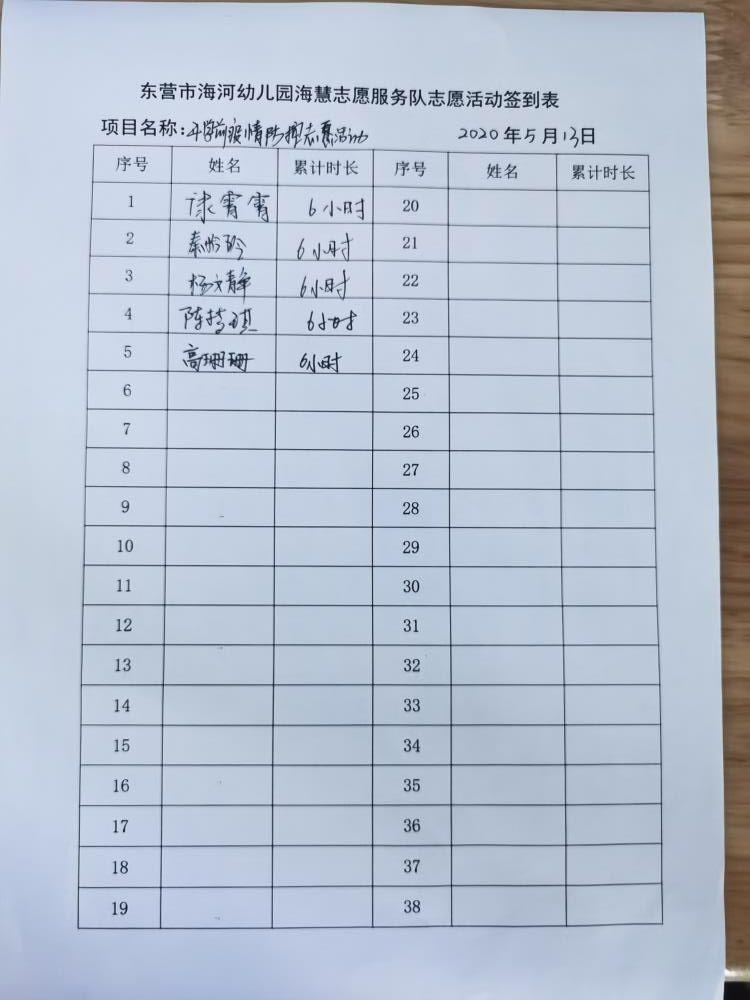 东营市海河幼儿园海慧志愿服务队志愿活动签到表
项目名称:开学前疫情防控志愿活动 2020年5月13日
序号 姓名 累计时长 序号 姓名 累计时长
1 逯霄霄 6小时 20
2 秦 6小时 21
3 杨文静 6小时 22
4 陈 琪 6小时 23
5 高珊珊 6小时 24
6 25
7 26
8 27
9 28
10 29
11 30
12 31
13 32
14 33
15 34
16 35
17 36
18 37
19 38